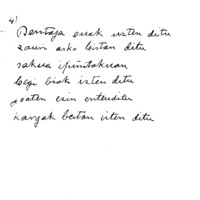 4)
Dentaja onak izten ditu
zauri asko bertan ditu
sakua ipuntakuan
begi biak izten ditu
joaten ezin entenditu
kargak bertan izten ditu